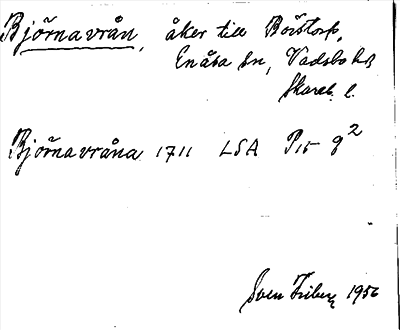 Björnavrån, åker till Börstorp,
Enåsa sn, Vadsbo hd
Skarab. l.
Björnavråna 1711 LSA P15 9²
Sven Friberg 1956